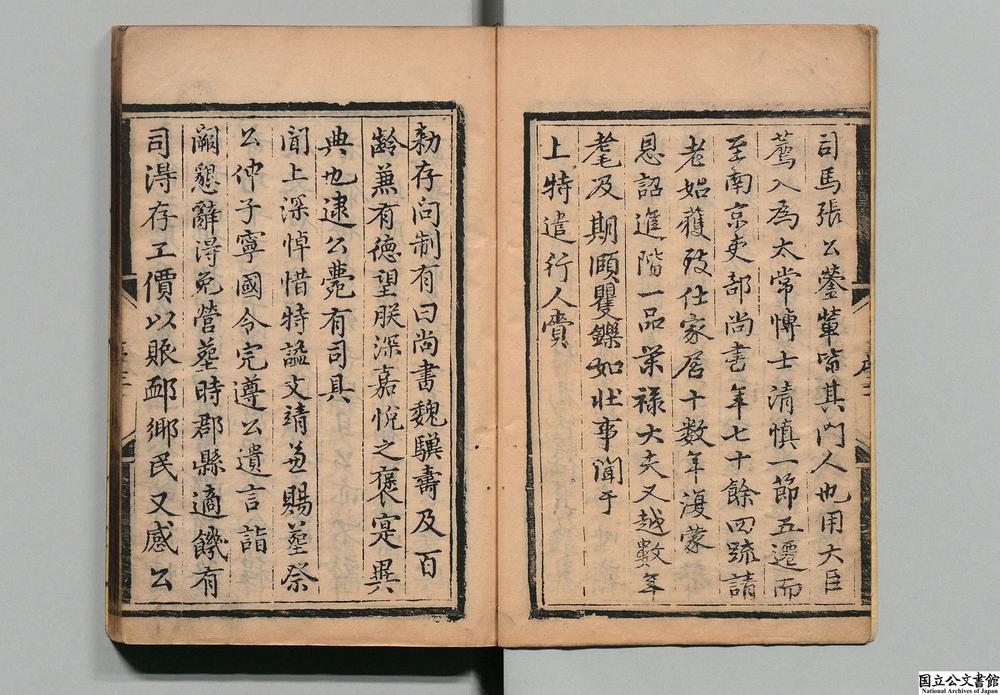 司馬張公鎣軰嘗其門人也用大臣
薦入為太常愽士清慎一節五遷而
至南京吏部尚書年七十餘四䟽請
老始𫉬致仕家居十數年復蒙
恩詔進階一品荣禄大夫又越數年
耄及期頥矍鑠如壯事聞于
上特遣行人賫
勑存问制有曰尚書魏驥壽及百
齡蕪有德望朕深嘉悅之褒寔異
典也逮公薨有司具
聞上深悼惜特謚文靖並賜塟祭
公仲子寧國令完遵公遺言詣
闕懇辭淂免營塟時郡縣適饑有
司淂存工價以賑䘏郷民又感公
国立公文書館
National Archives of Japan